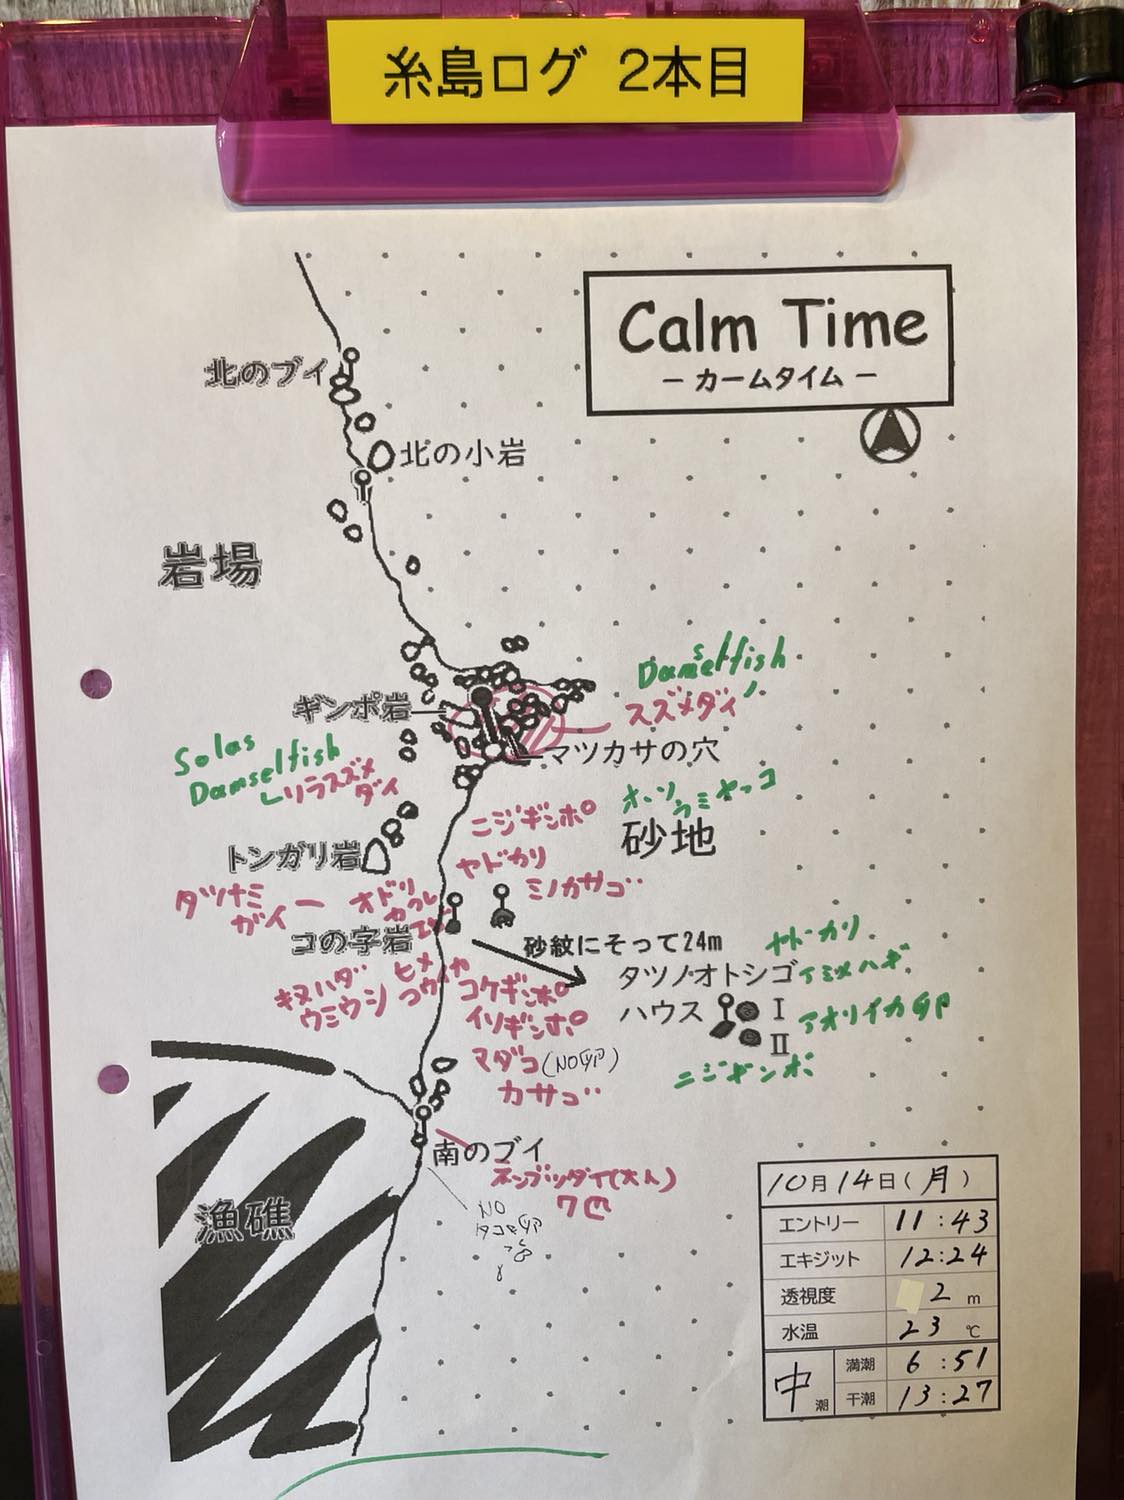 糸島ログ 2本目
Calm Time
－ カームタイム －
北のブイ
北の小岩
岩場
Damselfish
スズメダイ
ギンポ岩
マツカサの穴
Solas
Damselfish
ソラスズメ
ダイ
オーソウミヤッコ
ニジギンポ
砂地
トンガリ岩
ヤドカリ
ミノカサゴ
タツナミ
ガイ
オドリ
カクレ
エビ
コの字岩
砂紋にそって24m
ヤドカリ
タツノオトシゴ
ハウス
I
II
アミメハギ
アオリイカ卵
ニジギンポ
キヌハダ
ウミウシ
ヒメ
コウイカ
コケギンポ
イソギンポ
マダコ(NO卵)
カサゴ
南のブイ
ネンブツダイ(大人)
7匹
NO
タコ卵
漁礁
10月14日(月)
エントリー 11:43
エキジット 12:24
透視度 2 m
水温 23 ℃
中潮
満潮 6:51
干潮 13:27